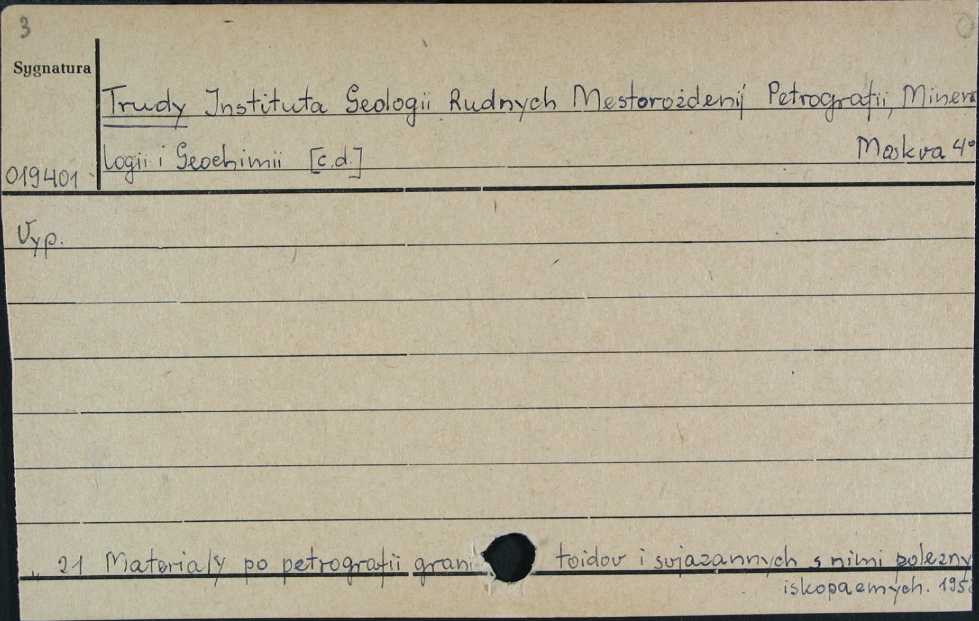 3
Sygnatura
Trudy Instituta Geologii Rudnych Mestorożdenij Petrografii, Minera
logii i Geochimii [c.d.] Moskva 4°
019401
Vyp.
„ 21 Materialy po petrografii grani toidov i svjazannych s nimi polezny
iskopaemych.